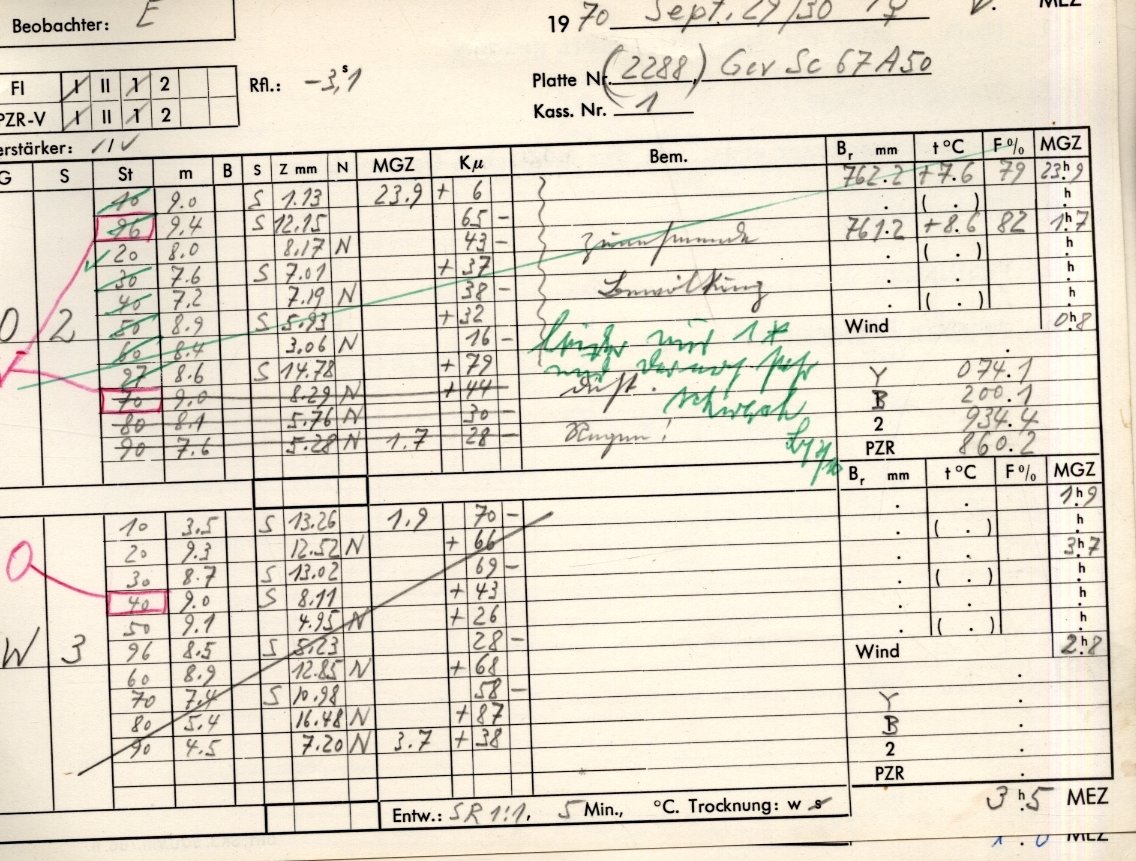 Beobachter: E
1970 Sept. 29/30 MEZ
FI I II 1 2
Rfl.: −3ˢ,1
Platte Nr. (2288) Gev Sc 67A50
PZR-V I II 1 2
Kass. Nr. 1
erstärker: IV
G S St m B S Z mm N MGZ Kμ Bem. Bᵣ mm t °C F % MGZ
10 9.0 S 1.13 23.9 + 6 762.2 +7.6 79 23ʰ9
96 9.4 S 12.15 65 − ( . ) h
20 8.0 8.17 N 43 − zunehmende 761.2 +8.6 82 1ʰ7
30 7.6 S 7.01 + 37 ( . ) h
40 7.2 7.19 N 38 − Bewölkung h
50 8.9 S 5.93 + 32 ( . ) h
O 2
60 8.4 3.06 N 16 − leider nur 1 * Wind 0ʰ8
27 8.6 S 14.78 + 79 und darauf sehr
70 9.0 8.29 N + 44 duft. schwach Y 074.1
80 8.1 5.76 N 30 − B 200.1
90 7.6 5.28 N 1.7 28 − Regen! 2 934.4
PZR 860.2
Bᵣ mm t °C F % MGZ
10 3.5 S 13.26 1.9 70 − 1ʰ9
20 9.3 12.52 N + 66 ( . ) h
O 30 8.7 S 13.02 69 − 3ʰ7
40 9.0 S 8.11 + 43 ( . ) h
50 9.1 4.95 N + 26 h
96 8.5 S 5.23 28 − ( . ) h
W 3
60 8.9 12.85 N + 68 Wind 2ʰ8
70 7.4 S 10.98 58 −
80 5.4 16.48 N + 87 Y
90 4.5 7.20 N 3.7 + 38 B
2
PZR
Entw.: SR 1:1, 5 Min., °C. Trocknung: w s 3ʰ5 MEZ
MEZ